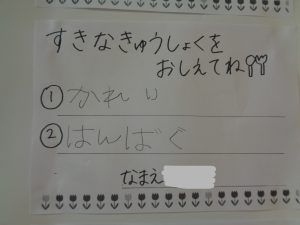 すきなきゅうしょくを
おしえてね
① かれい
② はんばぐ
なまえ